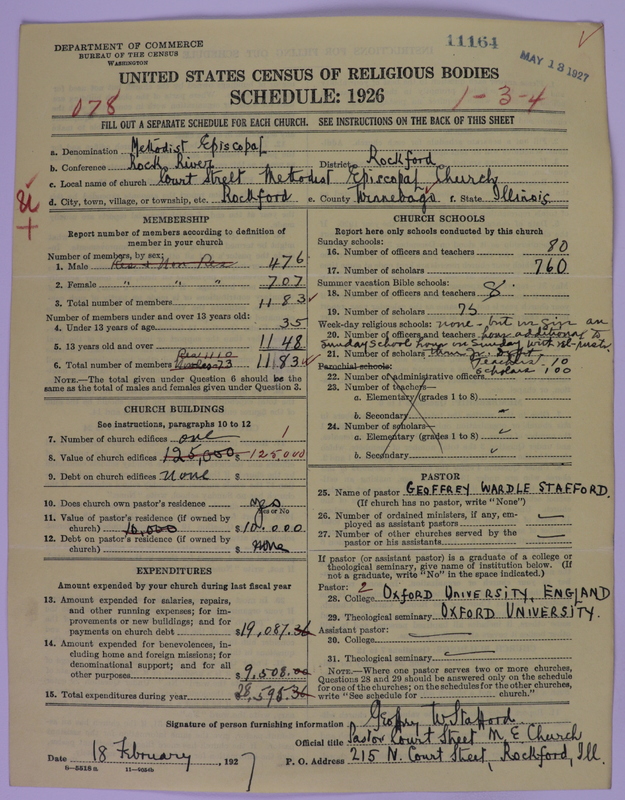 DEPARTMENT OF COMMERCE
BUREAU OF THE CENSUS
WASHINGTON
11164
MAY 18 1927
UNITED STATES CENSUS OF RELIGIOUS BODIES
SCHEDULE: 1926
078
1-3-4
FILL OUT A SEPARATE SCHEDULE FOR EACH CHURCH. SEE INSTRUCTIONS ON THE BACK OF THIS SHEET
a. Denomination Methodist Episcopal
b. Conference Rock River District Rockford
c. Local name of church Court Street Methodist Episcopal Church
d. City, town, village, or township, etc. Rockford e. County Winnebago f. State Illinois
MEMBERSHIP
Report number of members according to definition of
member in your church
Number of members, by sex:
1. Male Res + Non Res 476
2. Female " " " 707
3. Total number of members 1183
Number of members under and over 13 years old:
4. Under 13 years of age 35
5. 13 years old and over 1148
6. Total number of members Res 1110 Nonres 73 1183
NOTE.—The total given under Question 6 should be the
same as the total of males and females given under Question 3.
CHURCH BUILDINGS
See instructions, paragraphs 10 to 12
7. Number of church edifices one 1
8. Value of church edifices 125,000 $ 125000
9. Debt on church edifices none $
10. Does church own pastor's residence? yes
Yes or No
11. Value of pastor's residence (if owned by
church) 10,000 $ 10.000
12. Debt on pastor's residence (if owned by
church) $ none
EXPENDITURES
Amount expended by your church during last fiscal year
13. Amount expended for salaries, repairs,
and other running expenses; for im-
provements or new buildings; and for
payments on church debt $19,087.36
14. Amount expended for benevolences, in-
cluding home and foreign missions; for
denominational support; and for all
other purposes $ 9,508.00
15. Total expenditures during year $ 28,595.36
CHURCH SCHOOLS
Report here only schools conducted by this church
Sunday schools:
16. Number of officers and teachers 80
17. Number of scholars 760
Summer vacation Bible schools:
18. Number of officers and teachers 8
19. Number of scholars 75
Week-day religious schools: none - but we give an
20. Number of officers and teachers hour additional to
Sunday School hour on Sunday with
21. Number of scholars
Teachers 10
Parochial schools: Scholars 100
22. Number of administrative officers
23. Number of teachers—
a. Elementary (grades 1 to 8)
b. Secondary
24. Number of scholars—
a. Elementary (grades 1 to 8)
b. Secondary
PASTOR
25. Name of pastor GEOFFREY WARDLE STAFFORD.
(If church has no pastor, write "None")
26. Number of ordained ministers, if any, em-
ployed as assistant pastors —
27. Number of other churches served by the
pastor or his assistants —
If pastor (or assistant pastor) is a graduate of a college or
theological seminary, give name of institution below. (If
not a graduate, write "No" in the space indicated.)
Pastor: 2
28. College OXFORD UNIVERSITY, ENGLAND
29. Theological seminary OXFORD UNIVERSITY.
Assistant pastor:
30. College
31. Theological seminary
NOTE.—Where one pastor serves two or more churches,
Questions 28 and 29 should be answered only on the schedule
for one of the churches; on the schedules for the other churches,
write "See schedule for church."
Signature of person furnishing information Geoffrey W Stafford
Official title Pastor Court Street M E Church
Date 18 February, 1927 P. O. Address 215 N. Court Street, Rockford, Ill.
6—5518 a